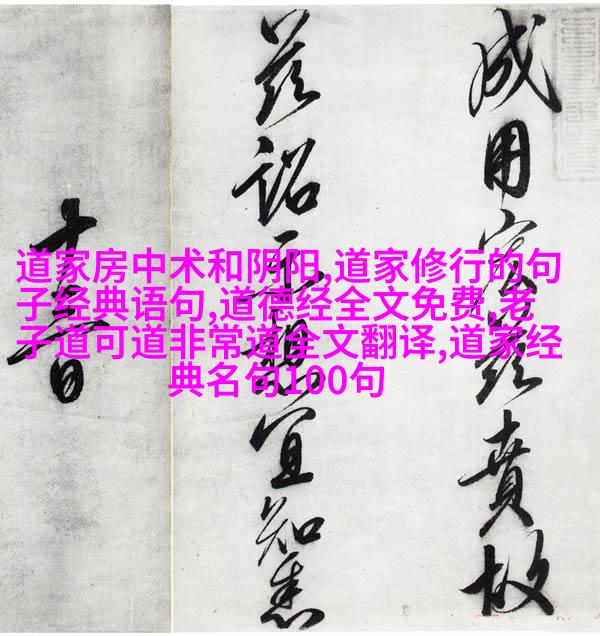 道家房中术和阴阳,道家修行的句
子经典语句,道德经全文免费,老
子道可道非常道全文翻译,道家经
典名句100句
成用宏茲賁故
茲詔示想宜知悉
日